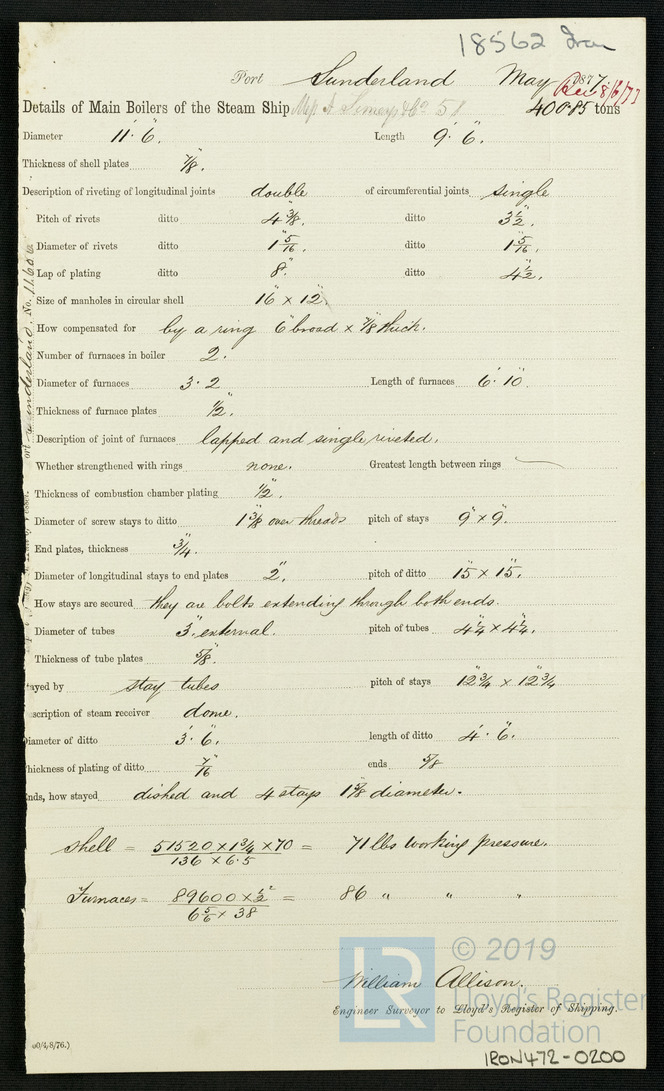 18562 Iron
Port Sunderland May 1877
Rec 8/6/77
Details of Main Boilers of the Steam Ship 51 tons
Diameter 11'. 6". Length 9'. 6".
Thickness of shell plates 7/8".
Description of riveting of longitudinal joints double of circumferential joints single
Pitch of rivets ditto 4 3/8". ditto 3 1/2".
Diameter of rivets ditto 1 5/16". ditto 1 5/16".
Lap of plating ditto 8". ditto 4 1/2".
Size of manholes in circular shell 16" x 12".
How compensated for by a ring 6" broad x 7/8" thick.
Number of furnaces in boiler 2.
Diameter of furnaces 3'. 2" Length of furnaces 6'. 10"
Thickness of furnace plates 1/2".
Description of joint of furnaces lapped and single riveted.
Whether strengthened with rings none. Greatest length between rings
Thickness of combustion chamber plating 1/2".
Diameter of screw stays to ditto 1 3/8" over threads pitch of stays 9" x 9".
End plates, thickness 3/4".
Diameter of longitudinal stays to end plates 2". pitch of ditto 15" x 15".
How stays are secured they are bolts extending through both ends.
Diameter of tubes 3" external. pitch of tubes 4 1/4" x 4 1/4".
Thickness of tube plates 5/8".
tayed by stay tubes pitch of stays 12 3/4" x 12 3/4"
scription of steam receiver dome.
Diameter of ditto 3'. 6". length of ditto 4'. 6".
hickness of plating of ditto 7/16" ends 5/8"
nds, how stayed dished and 4 stays 1 5/8" diameter.
Shell = 51520 x 1 3/4 x 70 / 136 x 6.5 = 71 lbs working pressure.
Furnaces = 89600 x 1/2² / 6 5/6 x 38 = 86 " " "
William Allison.
Engineer Surveyor to Lloyd's Register of Shipping.
© 2019
LR
Lloyd's Register
Foundation
IRON472-0200